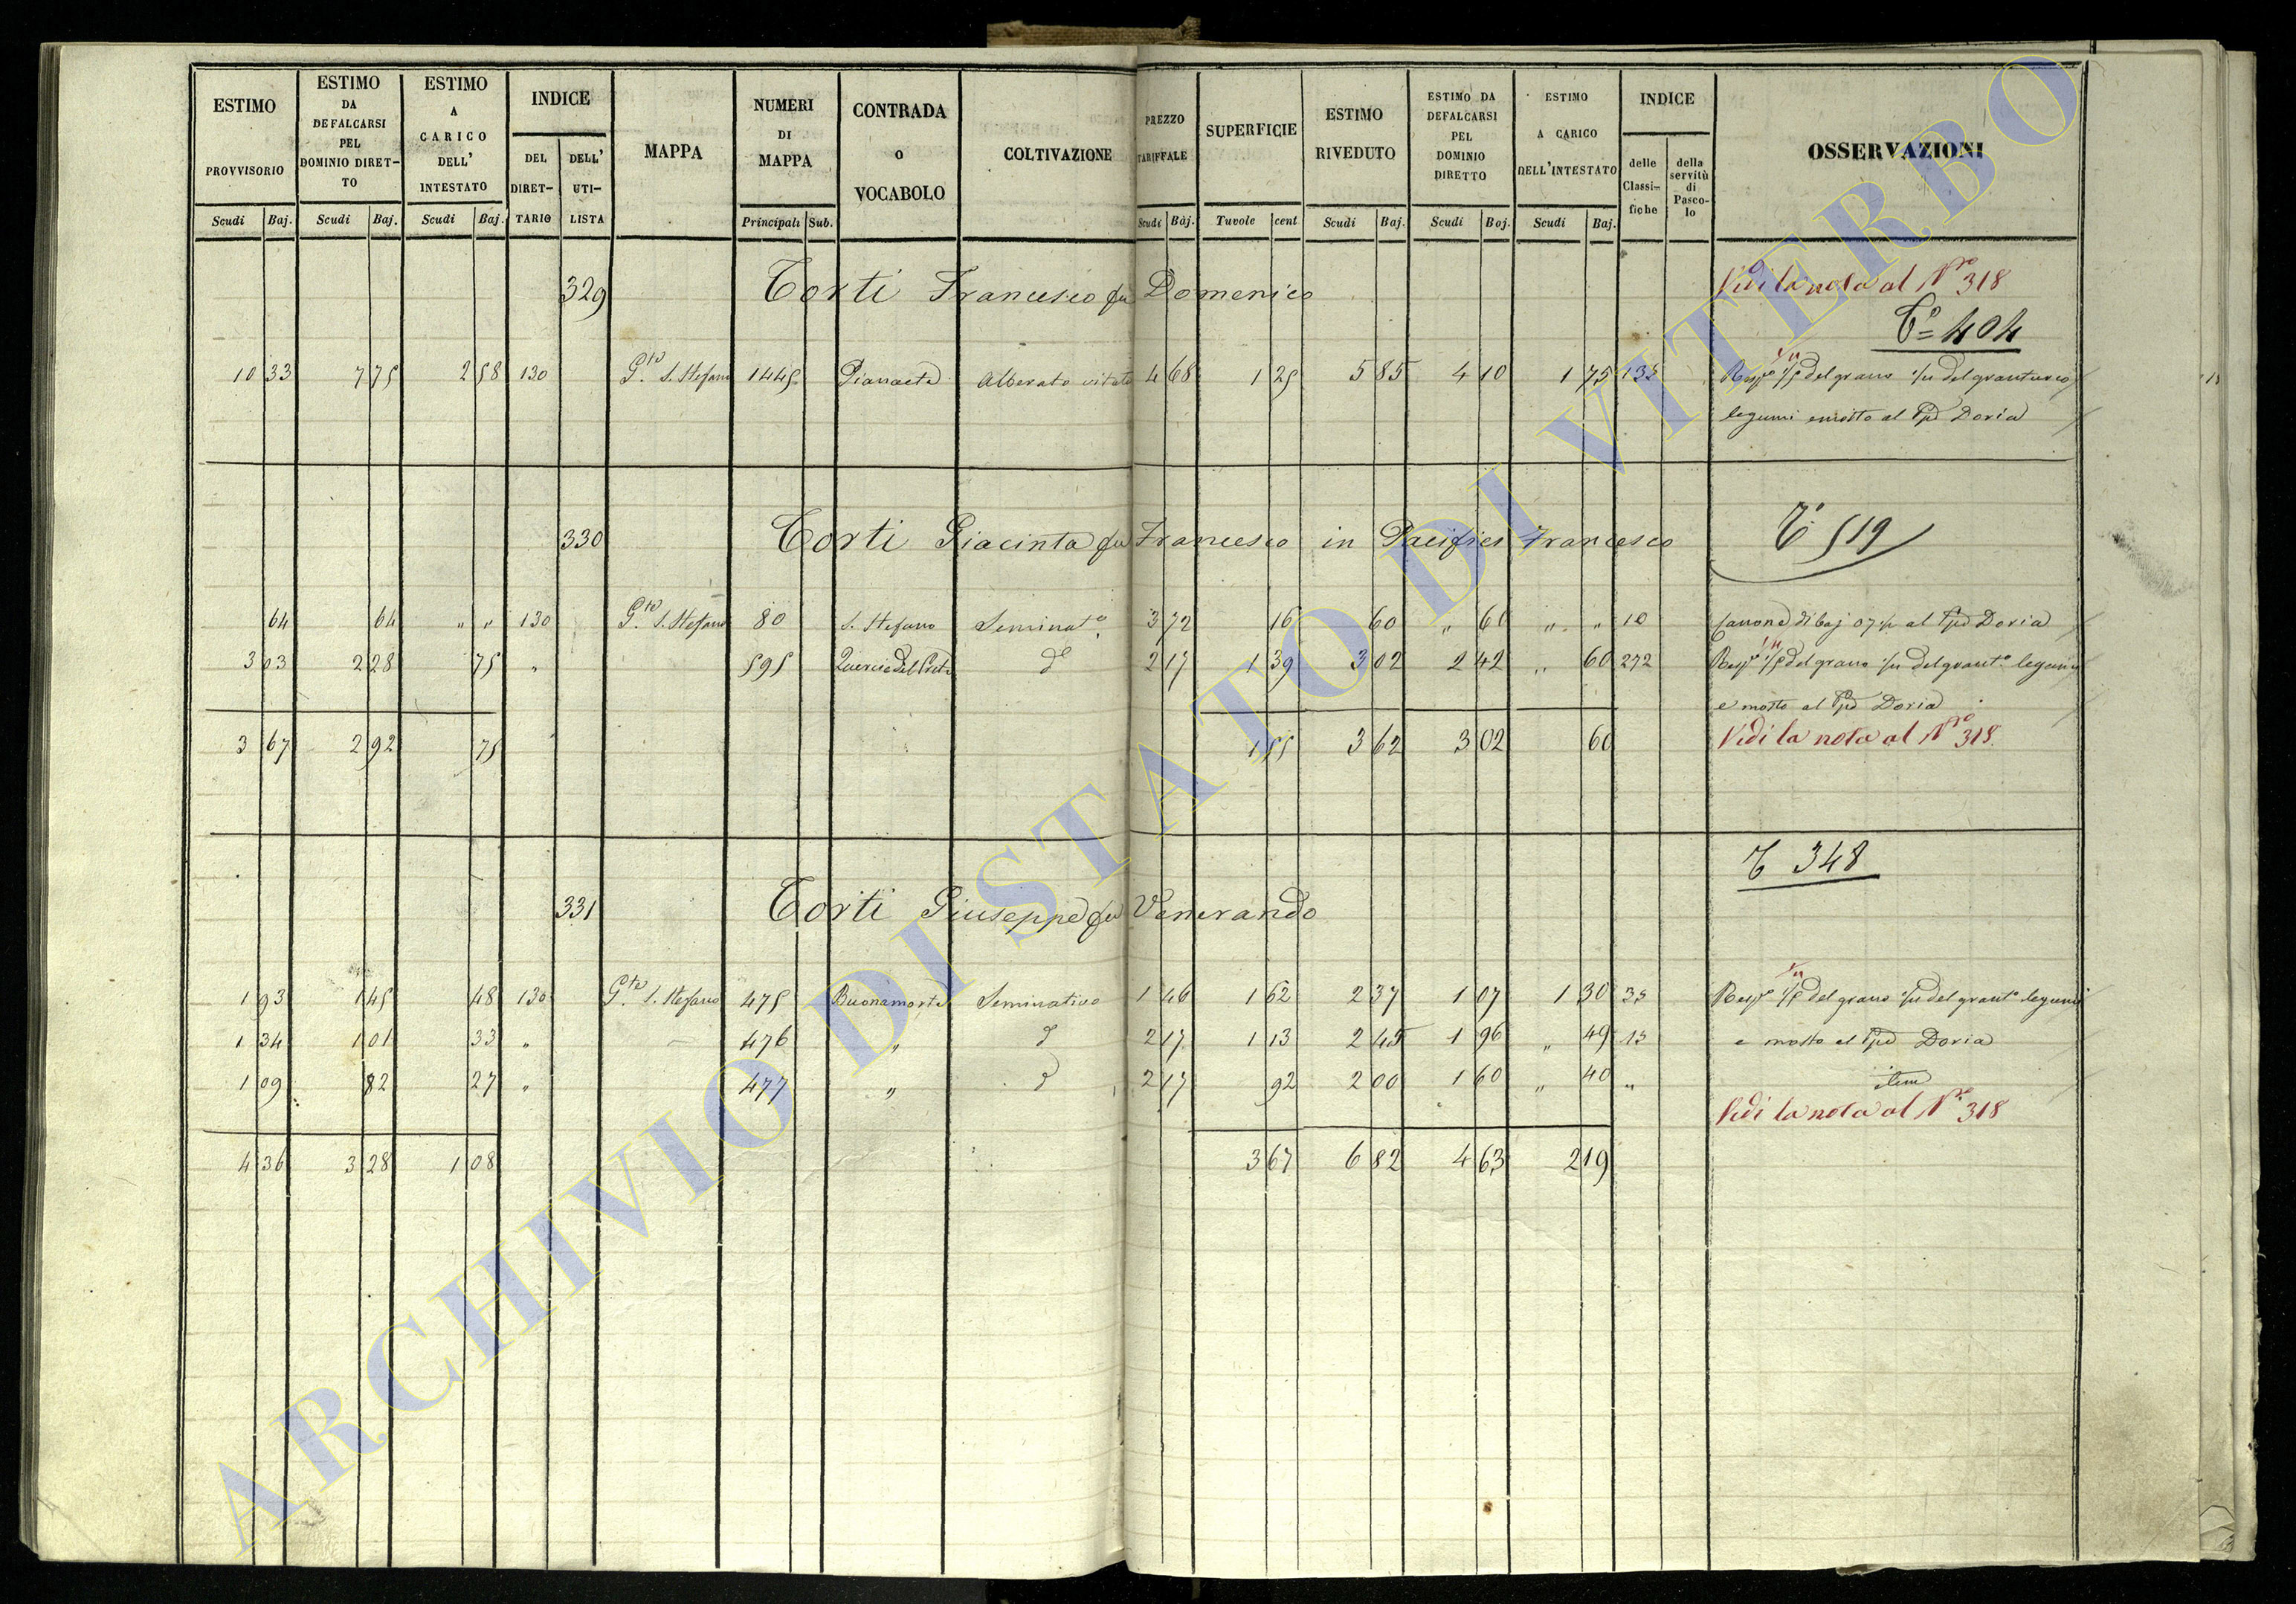 ESTIMO PROVVISORIO Scudi Baj.
ESTIMO DA DEFALCARSI PEL DOMINIO DIRETTO Scudi Baj.
ESTIMO A CARICO DELL' INTESTATO Scudi Baj.
INDICE DEL DIRETTARIO DELL' UTILISTA
MAPPA
NUMERI DI MAPPA Principali Sub.
CONTRADA O VOCABOLO
COLTIVAZIONE
PREZZO TARIFFALE Scudi Baj.
SUPERFICIE Tavole cent
ESTIMO RIVEDUTO Scudi Baj.
ESTIMO DA DEFALCARSI PEL DOMINIO DIRETTO Scudi Baj.
ESTIMO A CARICO DELL'INTESTATO Scudi Baj.
INDICE delle Classifiche della servitù di Pascolo
OSSERVAZIONI
329 Torti Francesco fu Domenico Vedi la nota al N.° 318
T.° = 404
10 33 7 75 2 58 130 G.tto S. Stefano 1445 Pianaeta Alberato vitato 4 68 1 25 5 85 4 10 1 75 132 Resp.e 1/5 del grano 1/11 del granturco
legumi e mosto al Ppe Doria
330 Torti Giacinta fu Francesco in Pacifici Francesco T.° 519
64 64 " " 130 G.tto S. Stefano 80 S. Stefano Seminat.o 3 72 16 60 " 60 " " 10 Canone di baj 07 1/2 al Ppe Doria
3 03 2 28 75 " 595 Quercia del Prete d.o 2 17 1 39 3 02 2 42 " 60 272 Resp.e 1/5 del grano 1/11 del grant.o legumi
e mosto al Ppe Doria
3 67 2 92 75 1 55 3 62 3 02 60 Vedi la nota al N.° 318
T 348
331 Torti Giuseppe fu Venerando
1 93 1 45 48 130 G.tto S. Stefano 475 Buonamorte Seminativo 1 46 1 62 2 37 1 07 1 30 33 Resp.e 1/5 del grano 1/11 del grant.o legumi
1 34 1 01 33 " 476 " d 2 17 1 13 2 45 1 96 " 49 13 e mosto al Ppe Doria
1 09 82 27 " 477 " d 2 17 92 2 00 1 60 " 40 " item
Vedi la nota al N.° 318
4 36 3 28 1 08 3 67 6 82 4 63 2 19
ARCHIVIO DI STATO DI VITERBO